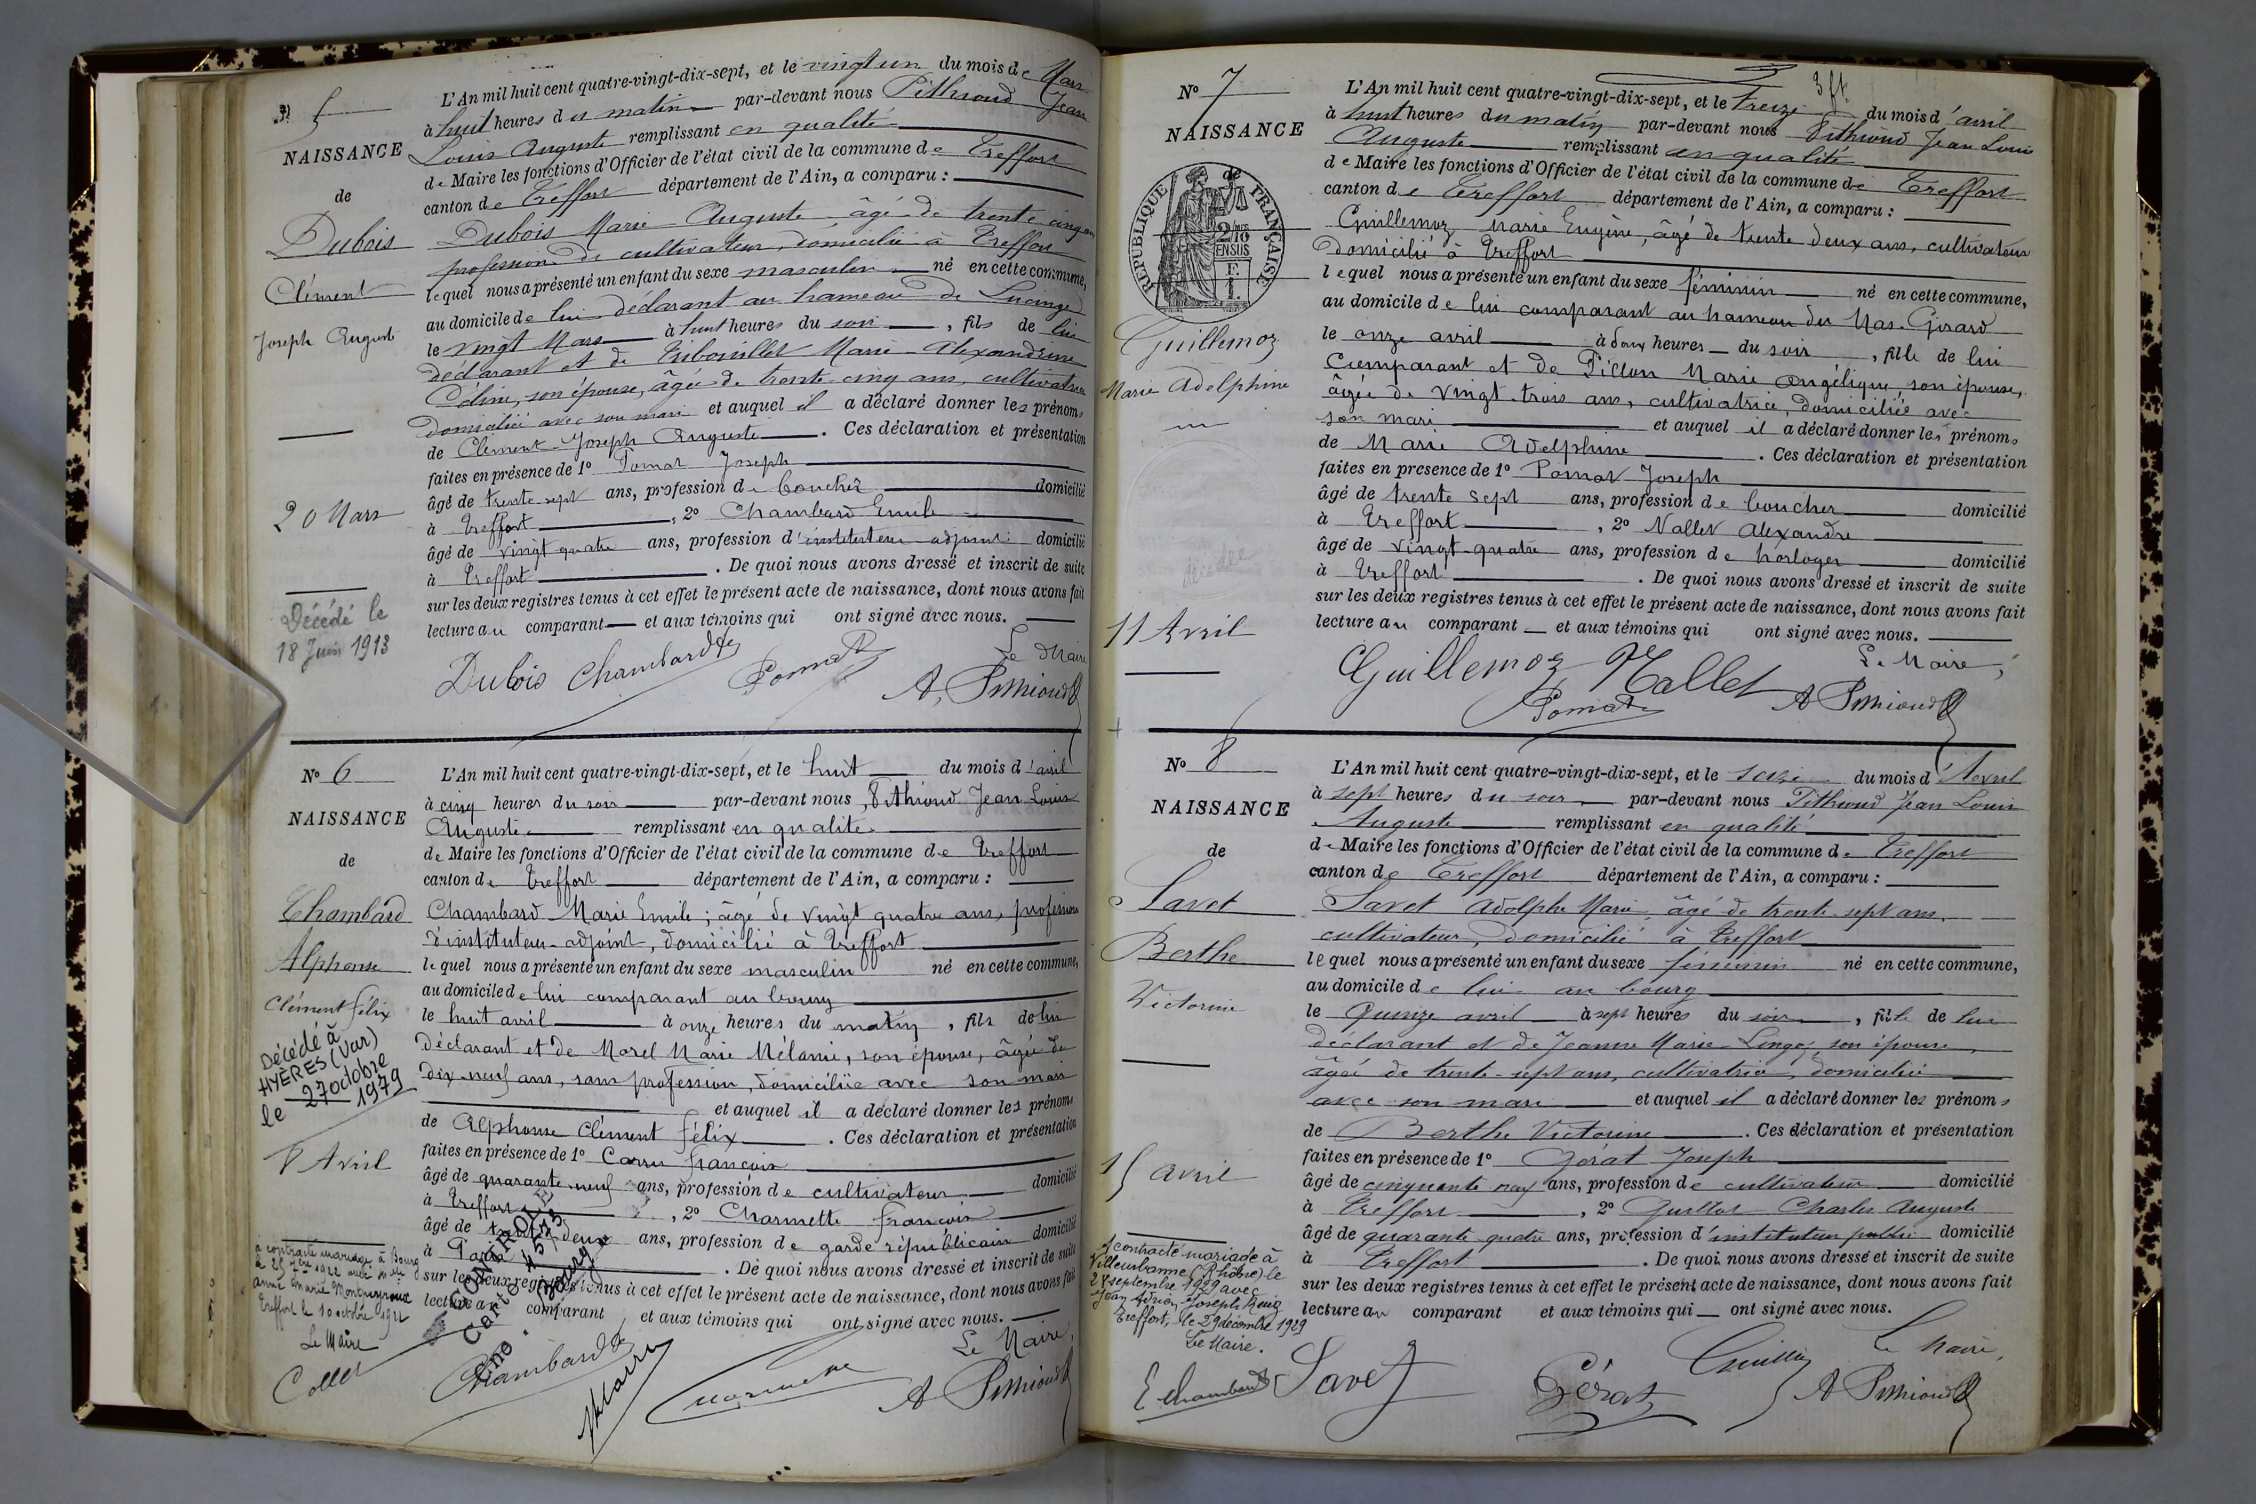 N° 5
NAISSANCE
de
Dubois
Clément
Joseph Auguste
20 Mars
Décédé le
18 Juin 1913
L'An mil huit cent quatre-vingt-dix-sept, et le vingt un du mois de Mars
à huit heures du matin par-devant nous Pithioud Jean
Louis Auguste remplissant en qualité
de Maire les fonctions d'Officier de l'état civil de la commune de Treffort
canton de Treffort département de l'Ain, a comparu :
Dubois Marie Auguste âgé de trente cinq ans
profession de cultivateur, domicilié à Treffort
lequel nous a présenté un enfant du sexe masculin né en cette commune,
au domicile de lui déclarant au hameau de Lucinge
le vingt Mars à huit heures du soir, fils de lui
déclarant et de Marie Alexandrine
Céline, son épouse, âgée de trente cinq ans, cultivatrice
domiciliée avec son mari et auquel il a déclaré donner les prénoms
de Clément Joseph Auguste. Ces déclaration et présentation
faites en présence de 1° Pomat Joseph
âgé de trente sept ans, profession de boucher domicilié
à Treffort, 2° Chambard Emile
âgé de vingt quatre ans, profession d'instituteur adjoint domicilié
à Treffort. De quoi nous avons dressé et inscrit de suite
sur les deux registres tenus à cet effet le présent acte de naissance, dont nous avons fait
lecture au comparant et aux témoins qui ont signé avec nous.
Le Maire
Dubois Chambard Pomat A. Pithioud
N° 6
NAISSANCE
de
Chambard
Alphonse
Clément félix
Décédé à
HYÈRES (Var)
le 27 octobre
1979
8 Avril
a contracté mariage à Bourg
le 25 7bre 1922 avec Mlle
Treffort le 10 octobre 1922
Le Maire
L'An mil huit cent quatre-vingt-dix-sept, et le huit du mois d'avril
à cinq heures du soir par-devant nous, Pithioud Jean Louis
Auguste remplissant en qualité
de Maire les fonctions d'Officier de l'état civil de la commune de Treffort
canton de Treffort département de l'Ain, a comparu :
Chambard Marie Emile ; âgé de vingt quatre ans, profession
d'instituteur-adjoint, domicilié à Treffort
lequel nous a présenté un enfant du sexe masculin né en cette commune,
au domicile de lui comparant au bourg
le huit avril à onze heures du matin, fils de lui
déclarant et de Morel Marie Mélanie, son épouse, âgée de
dix-neuf ans, sans profession, domiciliée avec son mari
et auquel il a déclaré donner les prénoms
de Alphonse Clément félix. Ces déclaration et présentation
faites en présence de 1° françois
âgé de quarante neuf ans, profession de cultivateur domicilié
à Treffort, 2° Charmette françois
âgé de trente deux ans, profession de garde républicain domicilié
à Paris. De quoi nous avons dressé et inscrit de suite
sur les deux registres tenus à cet effet le présent acte de naissance, dont nous avons fait
lecture au comparant et aux témoins qui ont signé avec nous.
CONTROLE
Le Maire,
Chambard A Pithioud
3 ft
N° 7
NAISSANCE
de
RÉPUBLIQUE FRANÇAISE
2/10 EN SUS
Guillemoz
Marie Adelphine
décédée
11 Avril
L'An mil huit cent quatre-vingt-dix-sept, et le treize du mois d'avril
à huit heures du matin par-devant nous Pithioud Jean Louis
Auguste remplissant en qualité
de Maire les fonctions d'Officier de l'état civil de la commune de Treffort
canton de Treffort département de l'Ain, a comparu :
Guillemoz, Marie Eugène, âgé de trente deux ans, cultivateur
domicilié à Treffort
lequel nous a présenté un enfant du sexe féminin né en cette commune,
au domicile de lui comparant au hameau du Mas-Girard
le onze avril à deux heures du soir, fille de lui
comparant et de Pillon Marie Angélique, son épouse,
âgée de vingt-trois ans, cultivatrice, domiciliée avec
son mari et auquel il a déclaré donner les prénoms
de Marie Adelphine. Ces déclaration et présentation
faites en présence de 1° Pomat Joseph
âgé de trente sept ans, profession de boucher domicilié
à Treffort, 2° Nallet Alexandre
âgé de vingt-quatre ans, profession de horloger domicilié
à Treffort. De quoi nous avons dressé et inscrit de suite
sur les deux registres tenus à cet effet le présent acte de naissance, dont nous avons fait
lecture au comparant et aux témoins qui ont signé avec nous.
Le Maire,
Guillemoz Nallet
Pomat A Pithioud
N° 8
NAISSANCE
de
Savet
Berthe
Victorine
15 avril
A contracté mariage à
Villeurbanne (Rhône) le
28 septembre 1929 avec
Jean Adrien Joseph
Treffort, le 29 décembre 1929
Le Maire.
E Chambard
L'An mil huit cent quatre-vingt-dix-sept, et le seize du mois d'Avril
à sept heures du soir par-devant nous Pithioud Jean Louis
Auguste remplissant en qualité
de Maire les fonctions d'Officier de l'état civil de la commune de Treffort
canton de Treffort département de l'Ain, a comparu :
Savet Adolphe Marie, âgé de trente-sept ans,
cultivateur, domicilié à Treffort
lequel nous a présenté un enfant du sexe féminin né en cette commune,
au domicile de lui au bourg
le Quinze avril à sept heures du soir, fille de lui
déclarant et de Jeanne Marie, son épouse,
âgée de trente-sept ans, cultivatrice, domiciliée
avec son mari et auquel il a déclaré donner les prénoms
de Berthe Victorine. Ces déclaration et présentation
faites en présence de 1° Gérat Joseph
âgé de cinquante neuf ans, profession de cultivateur domicilié
à Treffort, 2° Charles Auguste
âgé de quarante quatre ans, profession d'instituteur public domicilié
à Treffort. De quoi nous avons dressé et inscrit de suite
sur les deux registres tenus à cet effet le présent acte de naissance, dont nous avons fait
lecture au comparant et aux témoins qui ont signé avec nous.
Le Maire,
Savet Gérat A Pithioud